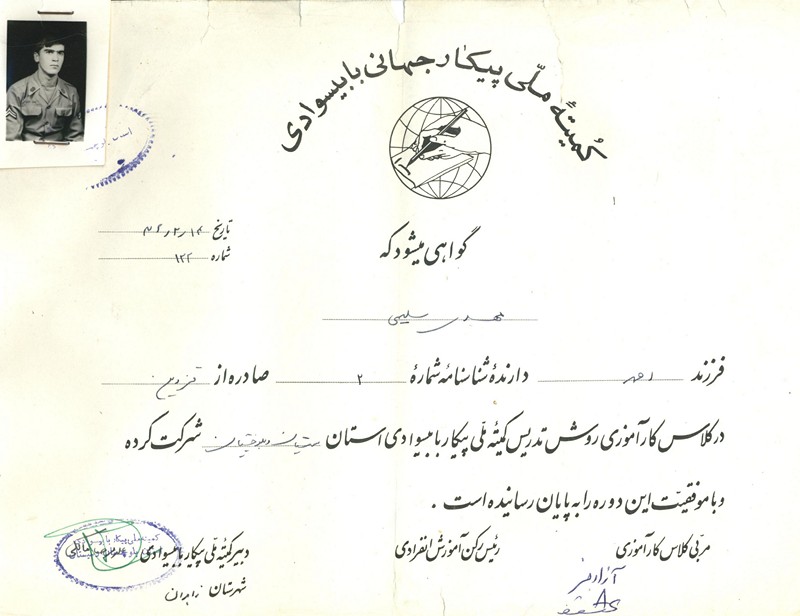 کمیتهٔ ملّی پیکار جهانی با بیسوادی
تاریخ ۴۶٫۲٫۱۴
شماره ۱۲۲
گواهی میشود که
مهدی سلیمی
فرزند احمد دارندهٔ شناسنامه شمارهٔ ۲ صادره از قزوین
در کلاس کارآموزی روش تدریس کمیته ملّی پیکار با بیسوادی استان سیستان و بلوچستان شرکت کرده
و با موفقیّت این دوره را به پایان رسانیده است .
مربّی کلاس کارآموزی
رئیس رکن آموزش انفرادی
دبیر کمیته ملّی پیکار با بیسوادی
شهرستان زاهدان